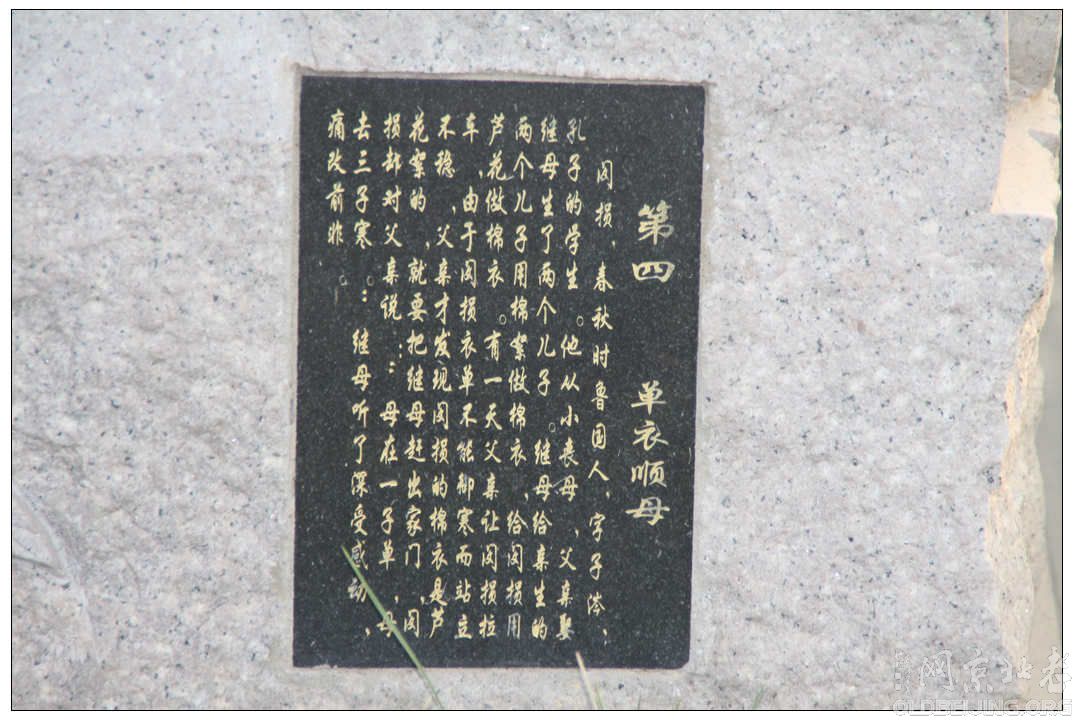 第四 单衣顺母
闵损，春秋时鲁国人，字子，
孔子的学生。他从小丧母，父亲娶
继母生了两个儿子。继母给亲生的
两个儿子用棉絮做棉衣，给闵损用
芦花做棉衣。有一天父亲让闵损拉
车，由于闵损衣单不能御寒而站立
不稳，父亲才发现闵损的棉衣是芦
花絮的，就要把继母赶出家门，闵
损却对父亲说：：母在一子单，母
去三子寒。：继母听了深受感动，
痛改前非。
网京北老
OLDBEIJING.ORG